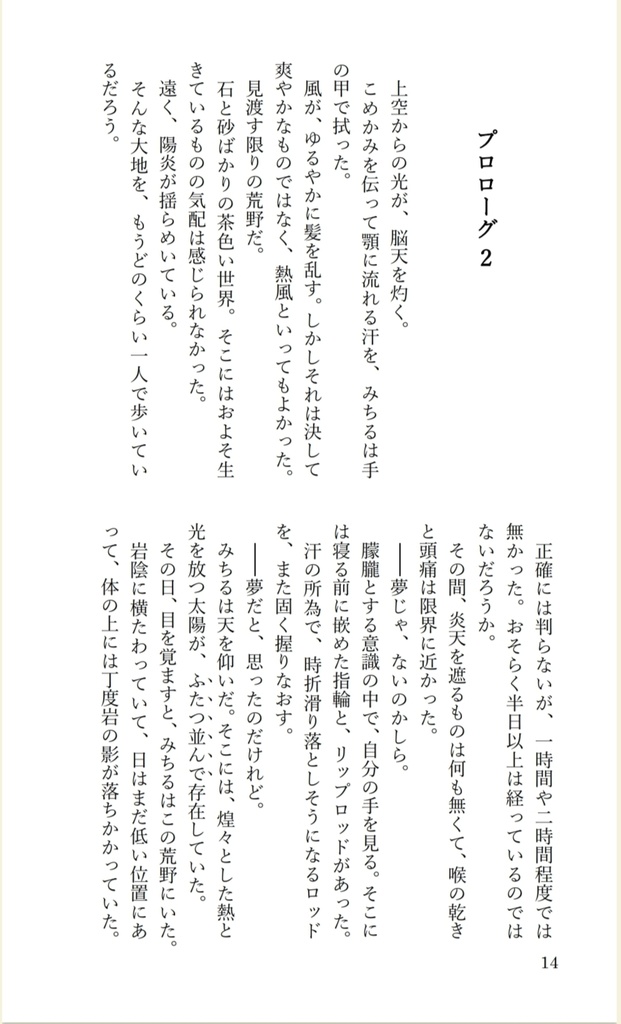 プロローグ 2
上空からの光が、脳天を灼く。
こめかみを伝って顎に流れる汗を、みちるは手
の甲で拭った。
風が、ゆるやかに髪を乱す。しかしそれは決して
爽やかなものではなく、熱風といってもよかった。
見渡す限りの荒野だ。
石と砂ばかりの茶色い世界。そこにはおよそ生
きているものの気配は感じられなかった。
遠く、陽炎が揺らめいている。
そんな大地を、もうどのくらい一人で歩いてい
るだろう。
正確には判らないが、一時間や二時間程度では
無かった。おそらく半日以上は経っているのでは
ないだろうか。
その間、炎天を遮るものは何も無くて、喉の乾き
と頭痛は限界に近かった。
――夢じゃ、ないのかしら。
朦朧とする意識の中で、自分の手を見る。そこに
は寝る前に嵌めた指輪と、リップロッドがあった。
汗の所為で、時折滑り落としそうになるロッド
を、また固く握りなおす。
――夢だと、思ったのだけれど。
みちるは天を仰いだ。そこには、煌々とした熱と
光を放つ太陽が、ふたつ並んで存在していた。
その日、目を覚ますと、みちるはこの荒野にいた。
岩陰に横たわっていて、日はまだ低い位置にあ
って、体の上には丁度岩の影が落ちかかっていた。
14